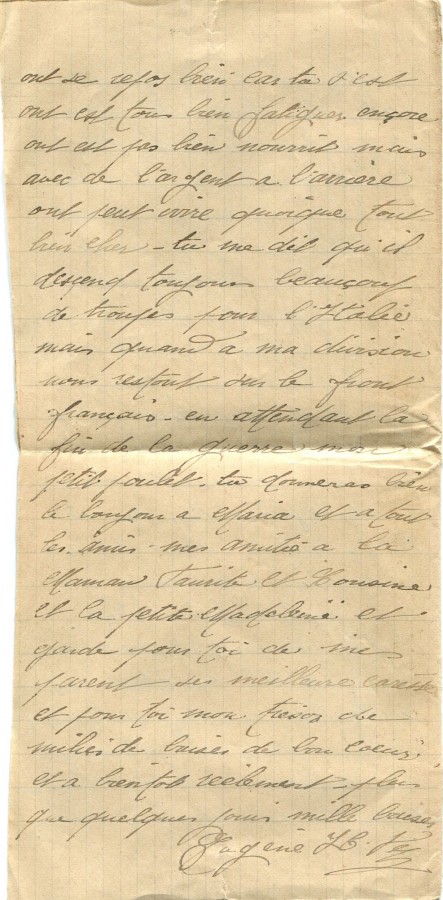 ont se repos bien car tu s'est
ont est tous bien fatiguer encore
ont est pas bien nourrit mais
avec de l'argent a l'arrière
ont peut vivre quoique tout
bien cher - tu me dit qu'il
descend toujours beaucouf
de troupes pour l'Italie
mais quand a ma division
nous restont sur le front
français - en attendant la
fin de la guerre mon
petit poulet - tu donneras bien
le bonjour a Maria et a tout
les amis - mes amitié a la
Maman Taurite et Cousine
et la petite Madeleine et
garde pour toi de mes
parent ses meilleure caresse
et pour toi mon tresor des
milies de baises de bon coeur,
et a bientôt réelement plus
que quelques jours mille baises
Eugène